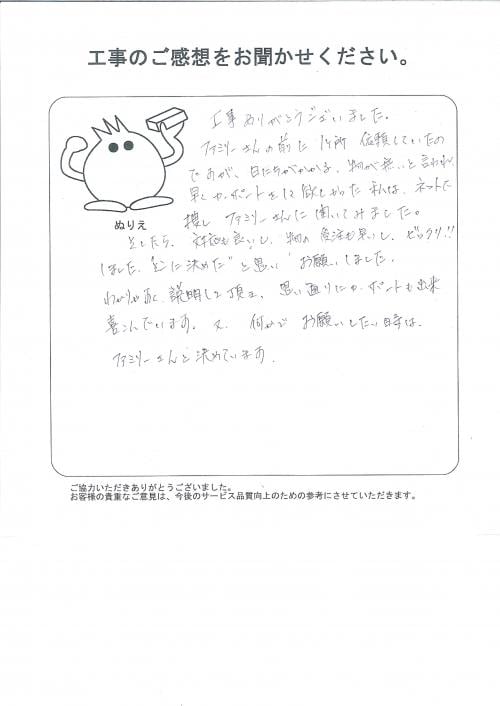 工事のご感想をお聞かせください。
工事ありがとうございました。
ファミリーさんの前に1ヶ所 依頼していたの
ですが、日にちがかかる、物が無いと言われ、
早くカーポントをして欲しかった私は、ネットで
捜し ファミリーさんに聞いてみました。
ぬりえ
そしたら、対応も良いし、物の発注も早いし、ビックリ!!
しました。に決めた"と思い お願いしました。
わかりやすく、説明して頂き、思い通りにカーポントも出来
喜こんでいます。又、何かで お願いしたい時は、
ファミリーさんと決めています。
ご協力いただきありがとうございました。
お客様の貴重なご意見は、今後のサービス品質向上のための参考にさせていただきます。